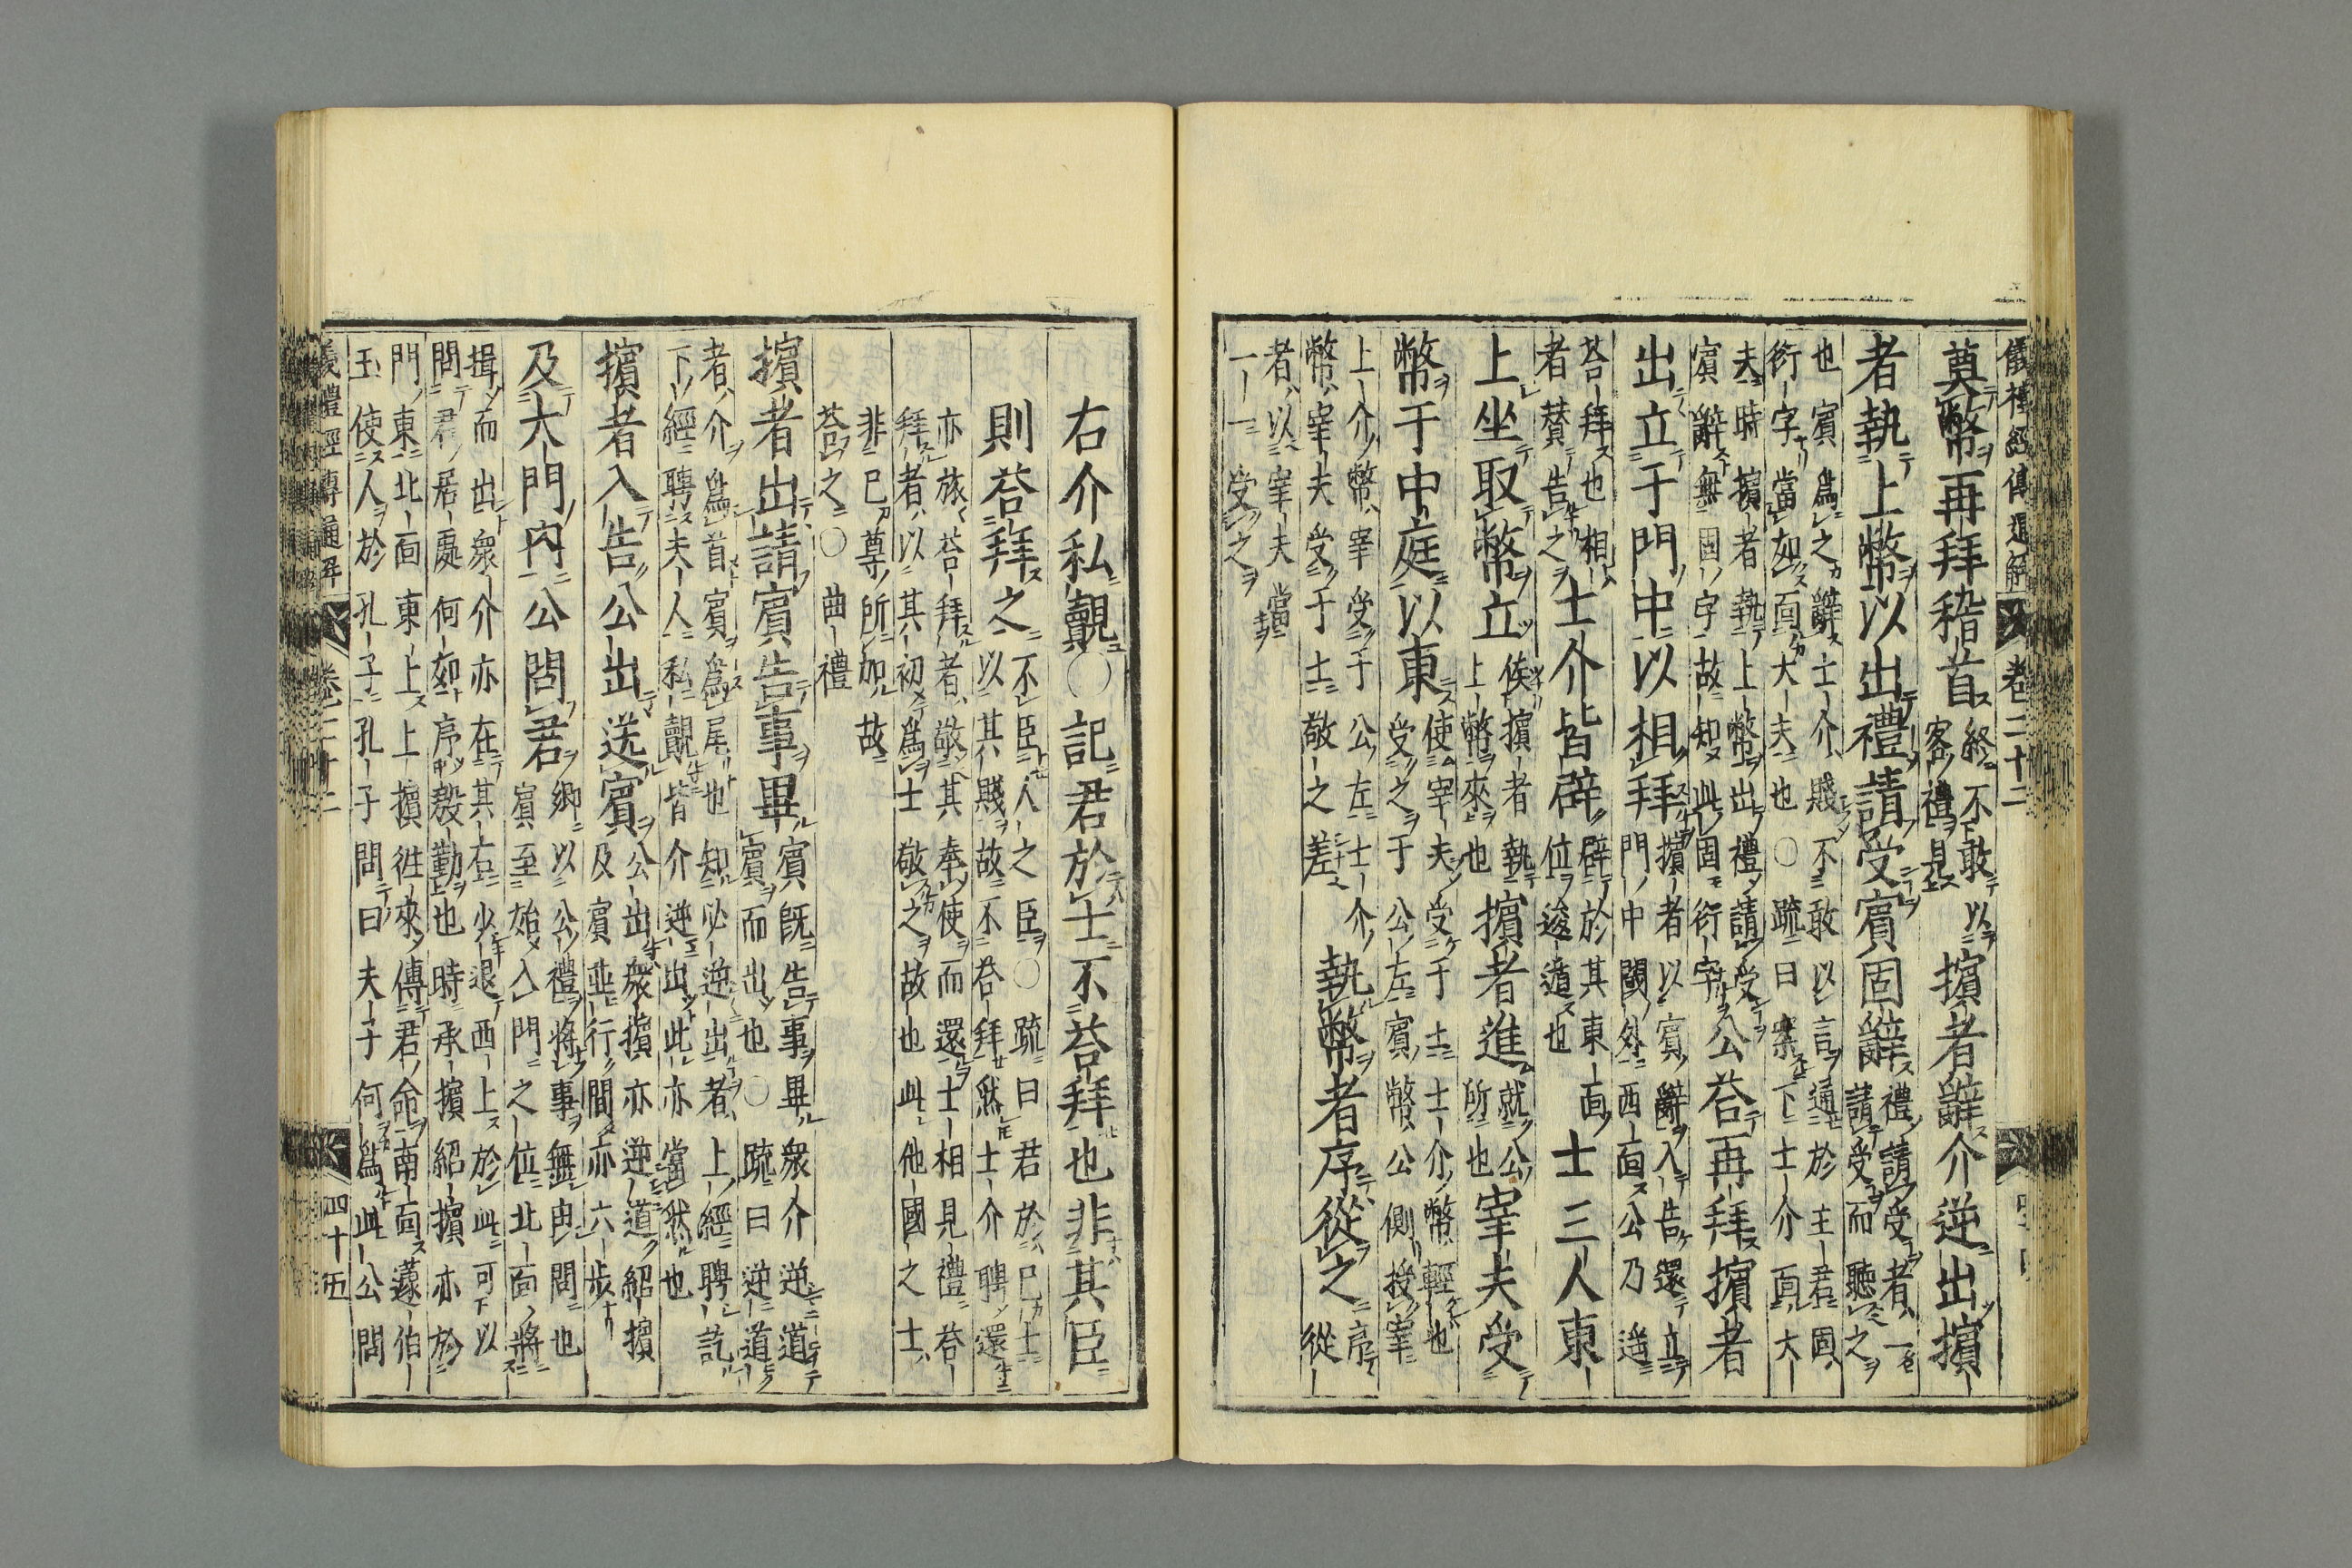 儀禮經傳通解 卷二十二
奠幣再拜稽首 終不敢以
客禮見 擯者辭介逆出擯
者執上幣以出禮請受賓固辭 禮請受者一
請受而聽之
也賓爲之辭士介賤不敢以言通於主君固
衍字當如面大夫也○疏曰案下士介面大
夫時擯者執上幣出禮請受
賓辭無固字故知此固衍字 公荅再拜擯者
出立于門中以相拜 擯者以賓辭入告還立
門中闑外西面公乃遙
荅拜也相
者賛告之 士介皆辟 辟於其東面
位逡遁也 士三人東
上坐取幣立 俟擯者執
上幣來也 擯者進 就公
所也 宰夫受
幣于中庭以東 使宰夫受于士士介幣輕也
受之于公左賓幣公側授宰
上介幣宰受于公左士介
幣宰夫受于士敬之差 執幣者序從之 序
從
者以宰夫當執
一一受之
右介私覿○記君於士不荅拜也非其臣
則荅拜之 不臣人之臣○疏曰君於己士
以其賤故不荅拜然士介聘還
亦旅荅拜者敬其奉使而還士相見禮荅
拜者以其初爲士敬之故也此他國之士
非己尊所加故
荅之○曲禮
擯者出請賓告事畢 賓既告事畢衆介逆道
賓而出也○疏曰逆道
者介爲首賓爲尾也知必逆出者上經聘訖
下經聘夫人私覿皆介逆出此亦當然也
擯者入告公出送賓 公出衆擯亦逆道紹擯
及賓並行間亦六步
及大門內公問君 鄉以公禮將事無由問也
賓至始入門之位北面將
揖而出衆介亦在其右少退西上於此可以
問君居處何如序殷勤也時承擯紹擯亦於
門東北面東上上擯往來傳君命南面蘧伯
玉使人於孔子孔子問曰夫子何爲此公問
儀禮經傳通解 卷二十二 四十五